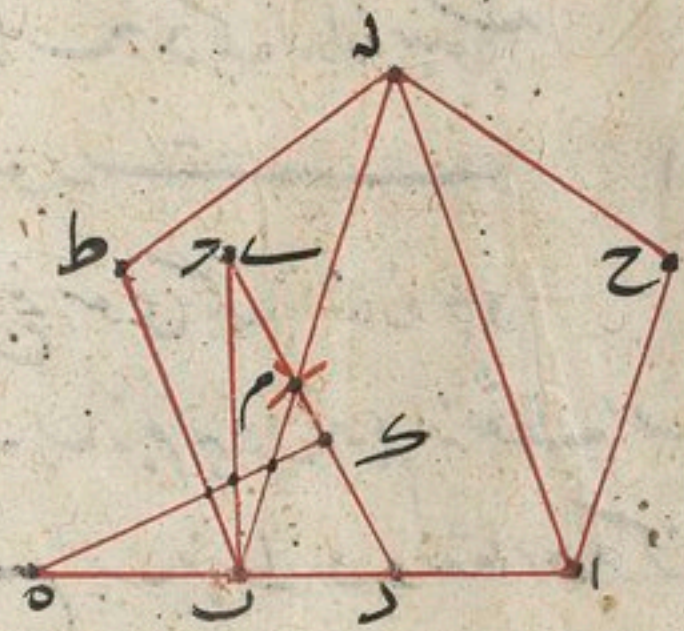 ز
ط ج س ح
م
ك
ه ب د ا